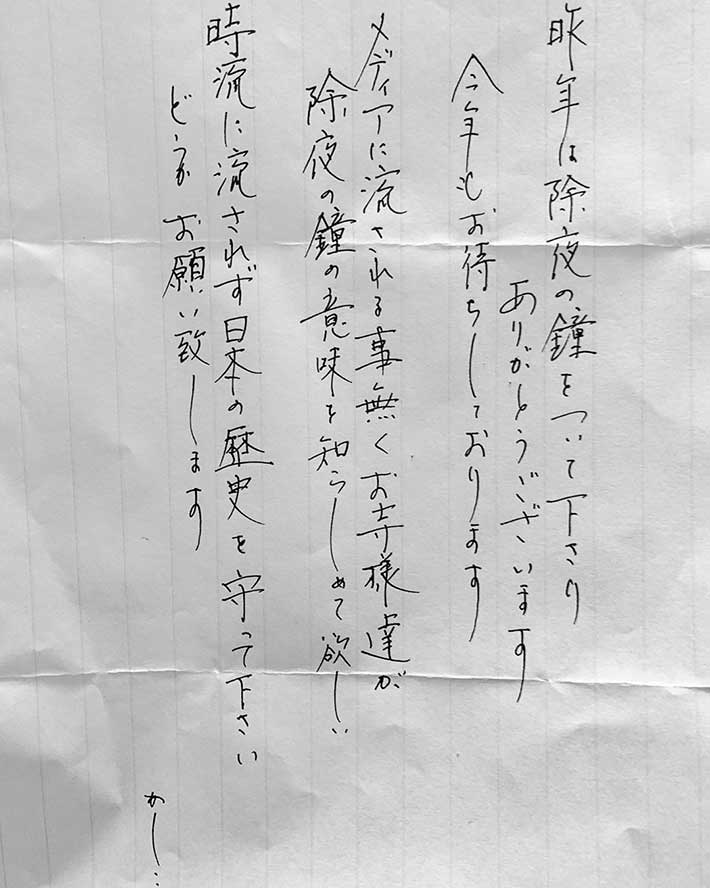 昨年は除夜の鐘をついて下さり
ありがとうございます
今年もお待ちしております
メディアに流される事無くお寺様達が
除夜の鐘の意味を知らしめて欲しい
時流に流されず日本の歴史を守って下さい
どうかお願い致します
かしこ